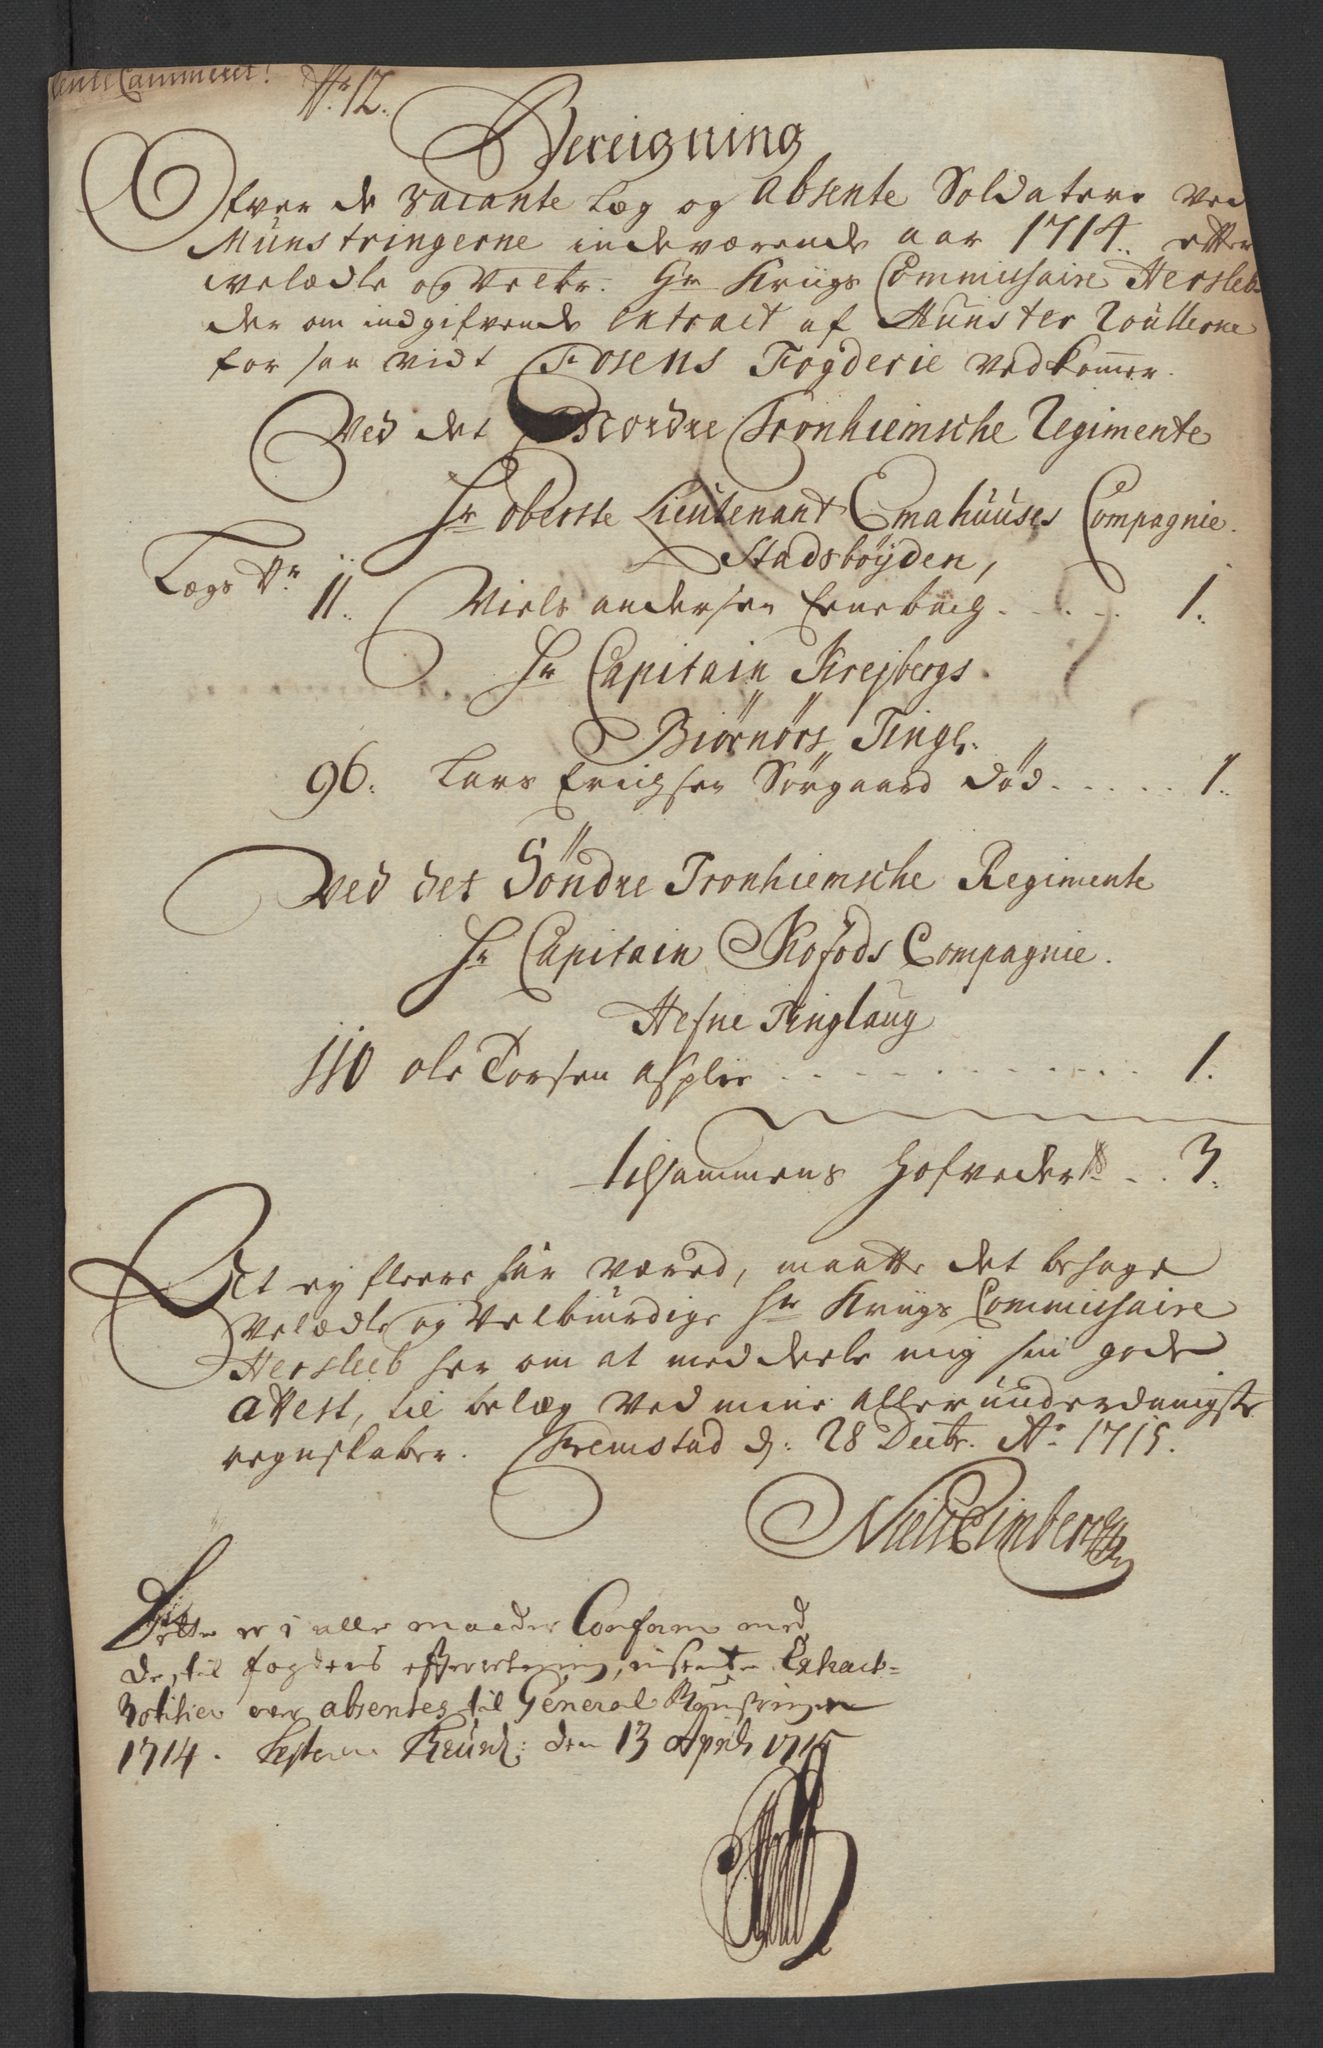 ente Cammeret!
Nr. 12.
Bereigning
Ofver de vacante Læg og absente Soldatere ved
Münstringerne indeværende aar 1714. efter
velædle og Velbr. Hr Kriigs Commissaire Hersleb
der om indgifvende Extract af Münster Roullerne
for saa vidt Fosens Fogderie vedkommer.
Ved det Nordre Tronhiemsche Regimente
Hr oberste Lieutenant Emahuuses Compagnie.
Stadsböyden,
Lægs Nr. 11. Niels andersen Enebacg . . . . . 1.
Hr Capitain Krejbergs
Biörnörs Tingl.
96. Lars Erichsen Sörgaard död . . . . . 1.
Ved det Söndre Tronhiemsche Regimente
Hr Capitain Kofods Compagnie.
Hefne Tinglaug
110 ole Torsen asplie . . . . . . . . . . 1.
tilsammens Hofveder . . 3.
At ey fleere har væred, maatte det behage
Velædle og Velbiurdige Hr Kriigs Commissaire
Hersleb her om at meddeele mig sin gode
attest, til belæg ved mine allerunderdanigste
regnskaber. Fremstad d: 28 Decbr. Ao 1715.
Niels Cimber
Dette er i alle maader Conform med
de, til fogdens efterretning, insendte Extract-
Rollier over absentes til General Mynstringen
1714. den 13 April 1715